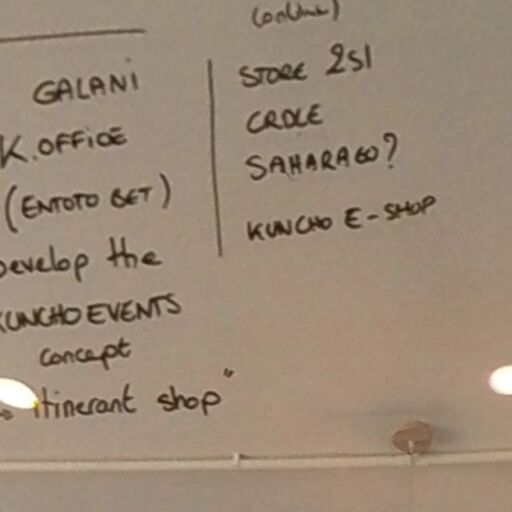 GALANI
K. OFFICE
(ENTOTO BET)
Develop the
KUNCHO EVENTS
concept
itinerant shop"
(online)
STORE 251
CROLE
SAHARAGO?
KUNCHO E-SHOP